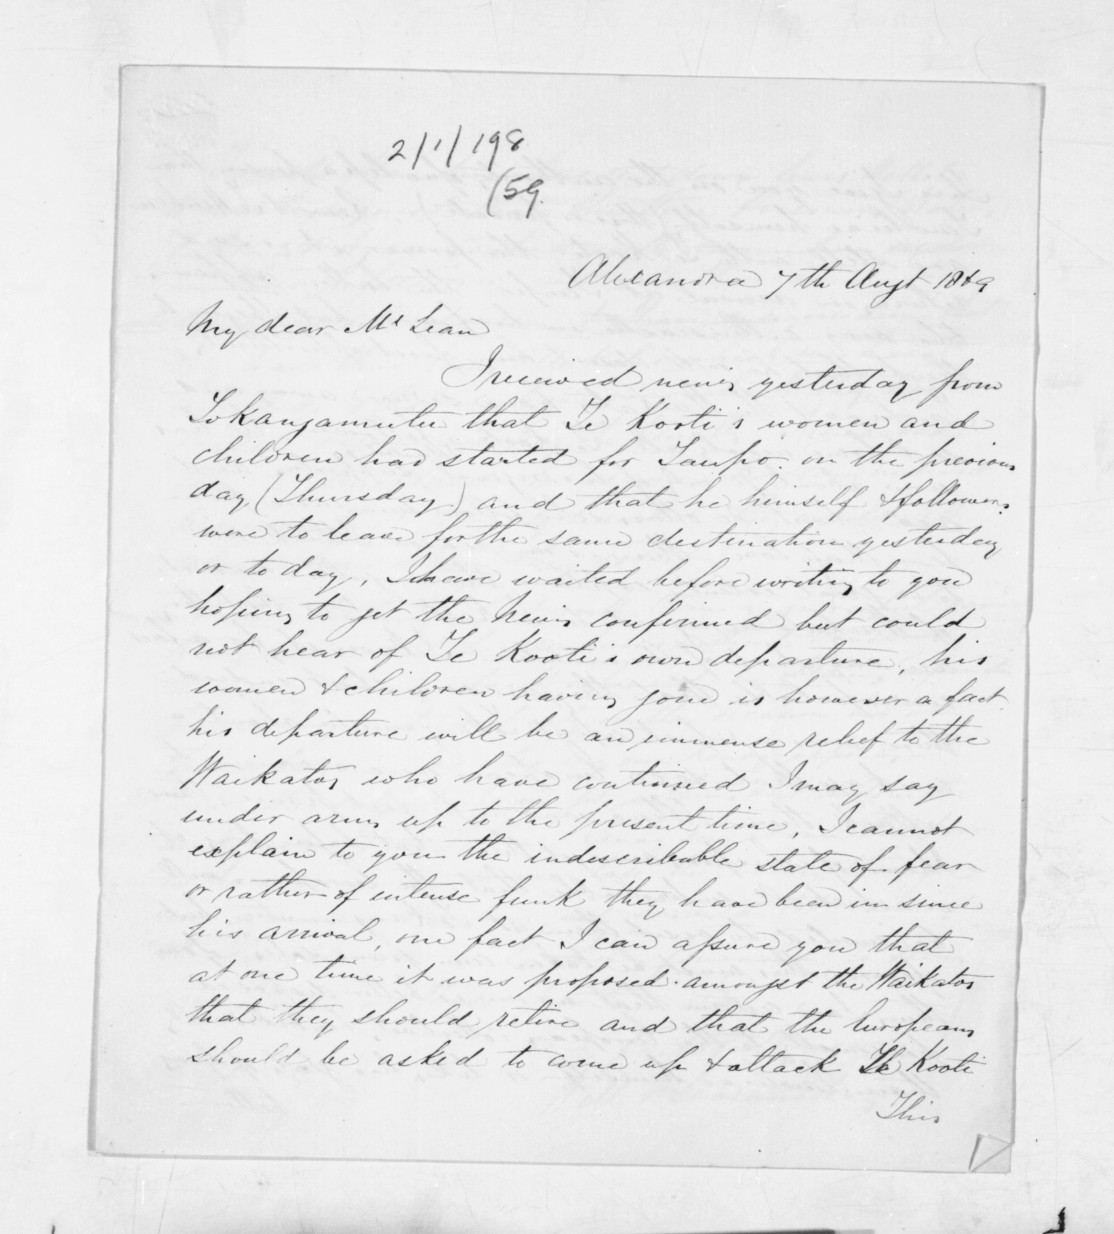 2/1/198
(59.
Alexandra 7th Augt 1869
My dear Mc Lean
I received news yesterday from
Tokangamutu that Te Kooti's women and
children had started for Taupo on the previous
day (Thursday) and that he himself & followers
were to leave for the same destination yesterday
or to day, I have waited before writing to you
hoping to get the News confirmed but could
not hear of Te Kooti's own departure, his
women & children having gone is however a fact.
his departure will be an immense relief to the
Waikatos who have continued I may say
under arms up to the present time, I cannot
explain to you the indescribable state of fear
or rather of intense funk they have been in since
his arrival, one fact I can assure you that
at one time it was proposed amongst the Waikatos
that they should retire and that the Europeans
should be asked to come up & attack Te Kooti
This